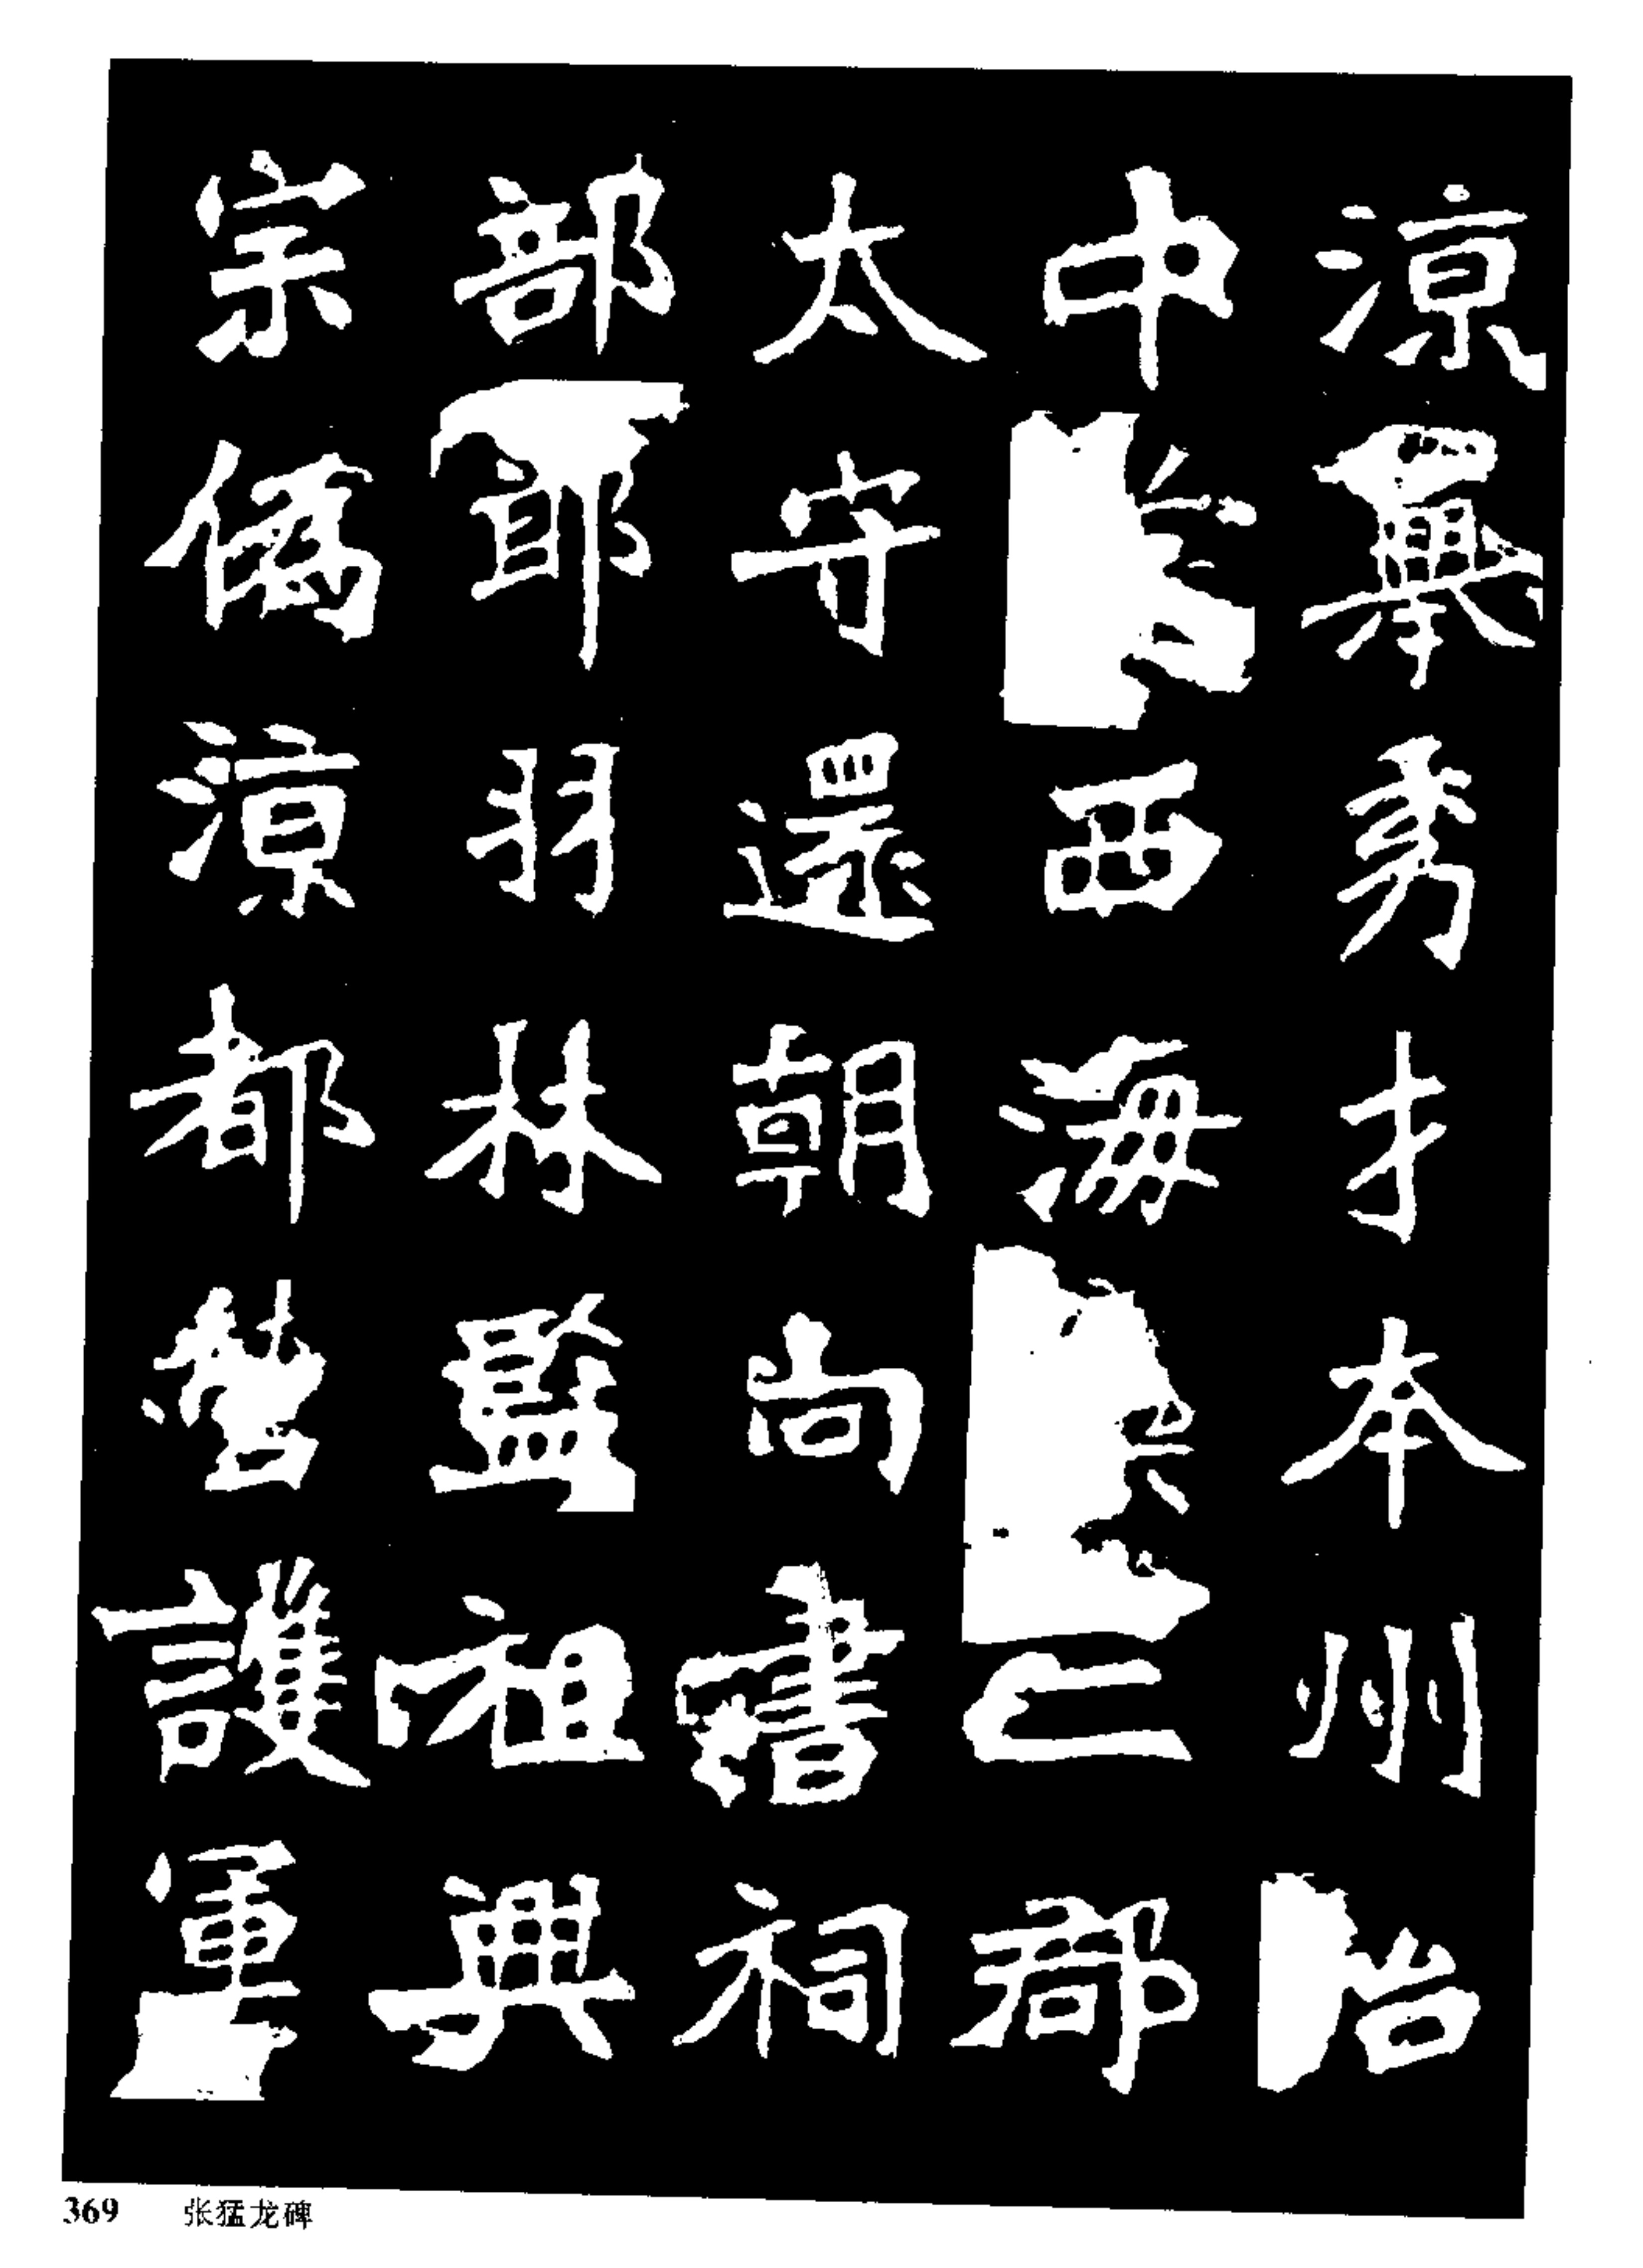 涼舉秀才本州治
中西海二郡
太守還朝尚書祠
部郎羽林監祖興
宗偽涼都營護軍
369 张猛龙碑